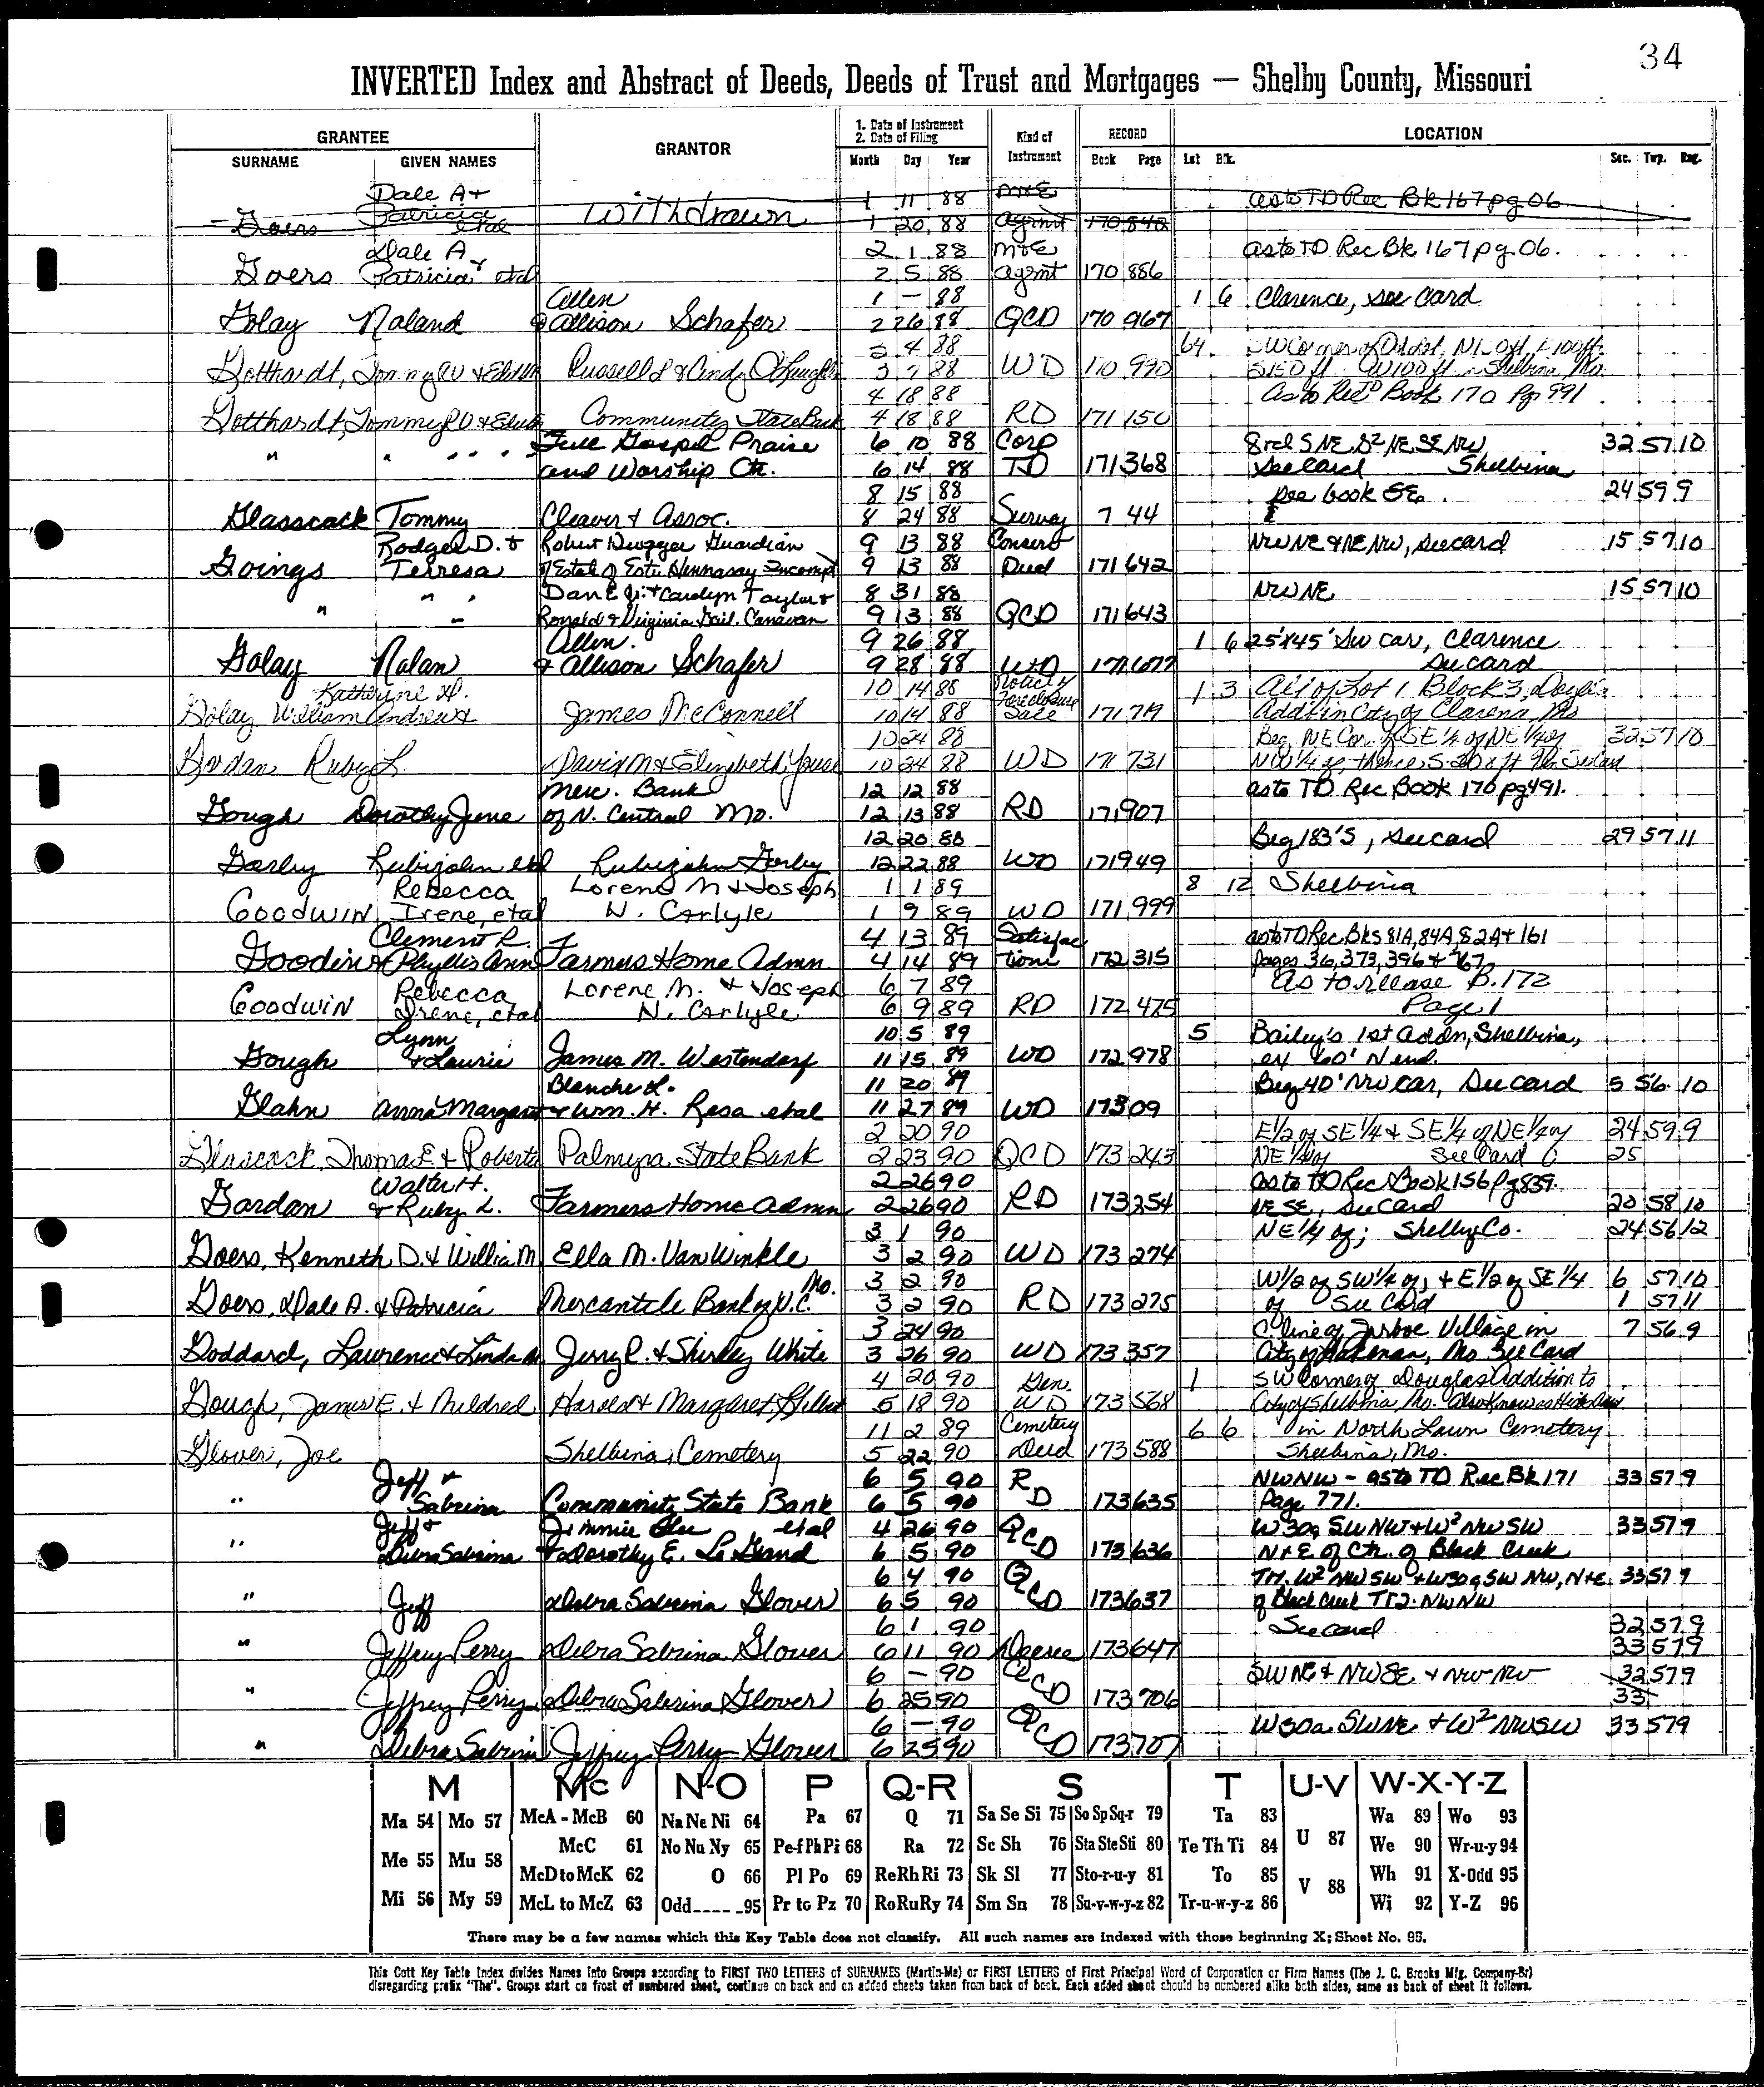 34
INVERTED Index and Abstract of Deeds, Deeds of Trust and Mortgages — Shelby County, Missouri
GRANTEE GRANTOR 1. Date of Instrument 2. Date of Filing Kind of Instrument RECORD LOCATION
SURNAME GIVEN NAMES Month Day Year Book Page Lot Blk. Sec. Twp. Rng.
Dale A + 1 11 88 M+E as to TD Rec Bk 167 pg 06
Goers Patricia etal Withdrawn 1 20 88 agrmt 170 842
Dale A + 2 1 88 M+E as to TD Rec Bk 167 pg 06.
Goers Patricia etal 2 5 88 agrmt 170 886
Allen 1 – 88 1 6 Clarence, see card
Golay Naland + Allison Schafer 2 26 88 QCD 170 967
4 88 64
Gotthardt, Tommy R V & Russell L & Cindy 7 88 WD 170 990 Shelbina, Mo.
4 18 88 As to Rec TD Book 170 Pg 991
Gotthardt, Tommy R V & Community State Bank 4 18 88 RD 171 150
Full Gospel Praise 6 10 88 Corp 8rd S NE, S2 NE SE NW 32 57 10
" " " " " and Worship Ctr. 6 14 88 TD 171 368 See Card Shelbina
8 15 88 see book SE. 24 59 9
Glasscock Tommy Cleaver & Assoc. 8 24 88 Survey 7 44
Rodger D. & Robert Dwgger Guardian 9 13 88 Conserv NW NE & NE NW, see card 15 57 10
Goings Terresa of Estate of Estu Hennasay Incomp 9 13 88 Deed 171 642
" " Dan E Jr. & Carolyn Taylor & 8 31 88 NW NE 15 57 10
" " Ronald & Virginia Gail Canavan 9 13 88 QCD 171 643
Allen 9 26 88 1 6 25'x45' SW cor, Clarence
Golay Nalan & Allison Schafer 9 28 88 WD 171 677 See card
Katherine D. 10 14 88 Notice of Foreclosure 1 3 All of Lot 1 Block 3,
Golay William Andrew & James McConnell 10 14 88 Sale 171 719 Addt in City of Clarence, Mo
10 24 88 Beg NE Cor. of SE 1/4 of NE 1/4 of 32 57 10
Gordan Ruby L. David M & Elizabeth 10 24 88 WD 171 731 NW 1/4 of, thence S.
Merc. Bank 12 12 88 as to TD Rec Book 170 pg 491.
Gough Dorothy June of N. Central Mo. 12 13 88 RD 171 907
12 20 88 Beg 183'S, see card 29 57 11
Gorby Rubijohn etal Rubijohn Gorby 12 22 88 WD 171 949
Rebecca Lorene M & Joseph 1 1 89 8 12 Shelbina
Goodwin Irene, etal N. Carlyle 1 9 89 WD 171 999
Clement R. 4 13 89 Satisfac as to TD Rec Bks 81A, 84A, 82A & 161
Goodin & Phyllis Ann Farmers Home Admn. 4 14 89 tion 172 315 pages 36, 373, 396 & 767
Rebecca Lorene M. & Joseph 6 7 89 As to release B. 172
Goodwin Irene, etal N. Carlyle 6 9 89 RD 172 475 Page 1
Lynn 10 5 89 5 Bailey's 1st Addn, Shelbina,
Gough & Laurie James M. Westendorf 11 15 89 WD 172 978 ex 60' N end.
Blanche L. 11 20 89 Beg 40' NW cor, See card 5 56 10
Glahn Anna Margaret & Wm. H. Rosa etal 11 27 89 WD 173 09
2 20 90 E 1/2 of SE 1/4 & SE 1/4 of NE 1/4 of 24 59 9
Glascock, Thomas E & Roberta Palmyra State Bank 2 23 90 QCD 173 243 NE 1/4 of See Card 25
Walter H. 2 26 90 as to TD Rec Book 156 Pg 839.
Gordon & Ruby L. Farmers Home Admn 2 26 90 RD 173 254 NE SE, See Card 20 58 10
3 1 90 NE 1/4 of; Shelby Co. 24 56 12
Goers, Kenneth D. & Willia M Ella M. VanWinkle 3 2 90 WD 173 274
Mo. 3 2 90 W 1/2 of SW 1/4 of, + E 1/2 of SE 1/4 6 57 10
Goers, Dale A. & Patricia Mercantile Bank of N.C. 3 2 90 RD 173 275 of See Card 1 57 11
3 24 90 C. line of Village in 7 56 9
Goddard, Lawrence & Linda Jerry R. & Shirley White 3 26 90 WD 173 357 City of Lakenan, Mo See Card
4 20 90 Gen. 1 SW Corner of Douglas Addition to
Gough, James E. & Mildred Harold & Margaret 5 18 90 WD 173 568 City of Shelbina, Mo. Also Known as
11 2 89 Cemetery 6 6 in North Lawn Cemetery
Glover, Joe Shelbina Cemetery 5 22 90 Deed 173 588 Shelbina, Mo.
Jeff & 6 5 90 R NWNW - as to TD Rec Bk 171 33 57 9
" Sabrina Community State Bank 6 5 90 D 173 635 Page 771.
Jeff & Jimmie etal 4 26 90 QCD W30a SW NW + W2 NW SW 33 57 9
" Debra Sabrina & Dorothy E. LeGrand 6 5 90 173 636 N+E of Ctr. of Black Creek
6 4 90 QCD W2 NW SW + W30a SW NW, N+E 33 57 9
" Jeff Debra Sabrina Glover 6 5 90 173 637 of Black Creek NWNW
6 1 90 See card 32 57 9
" Jeffrey Perry Debra Sabrina Glover 6 11 90 Decree 173 647 33 57 9
6 – 90 QCD SW NE + NW SE + NW NW 32 57 9
" Jeffrey Perry Debra Sabrina Glover 6 25 90 173 706 33
6 – 90 QCD W30a SWNE + W2 NWSW 33 57 9
" Debra Sabrina Jeffrey Perry Glover 6 25 90 173 707
M Mc N-O P Q-R S T U-V W-X-Y-Z
Ma 54 Mo 57 McA - McB 60 Na Ne Ni 64 Pa 67 Q 71 Sa Se Si 75 So Sp Sq-r 79 Ta 83 U 87 Wa 89 Wo 93
Me 55 Mu 58 McC 61 No Nu Ny 65 Pe-f Ph Pi 68 Ra 72 Sc Sh 76 Sta Ste Sti 80 Te Th Ti 84 We 90 Wr-u-y 94
McD to McK 62 O 66 Pl Po 69 Re Rh Ri 73 Sk Sl 77 Sto-r-u-y 81 To 85 V 88 Wh 91 X-Odd 95
Mi 56 My 59 McL to McZ 63 Odd - - - - - 95 Pr to Pz 70 Ro Ru Ry 74 Sm Sn 78 Su-v-w-y-z 82 Tr-u-w-y-z 86 Wi 92 Y-Z 96
There may be a few names which this Key Table does not classify. All such names are indexed with those beginning X; Sheet No. 95.
This Cott Key Table Index divides Names into Groups according to FIRST TWO LETTERS of SURNAMES (Martin-Ma) or FIRST LETTERS of First Principal Word of Corporation or Firm Names (The J. C. Brooks Mfg. Company-Br)
disregarding prefix "The". Groups start on front of numbered sheet, continue on back and on added sheets taken from back of book. Each added sheet should be numbered alike both sides, same as back of sheet it follows.